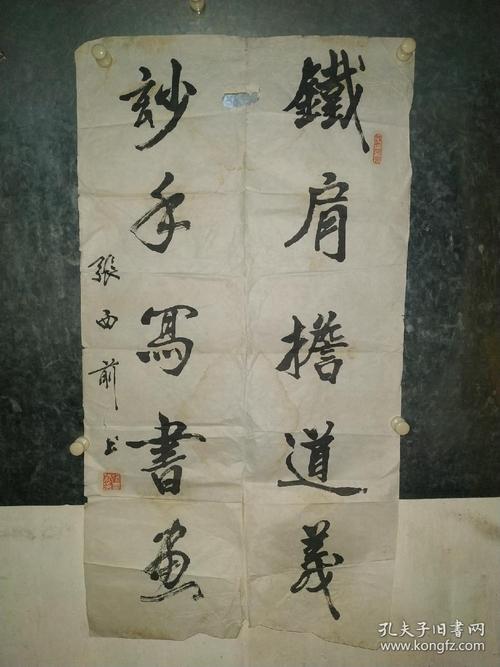 鐵肩擔道義
訬手寫書畫
張西前书
孔夫子旧书网
www.kongfz.com